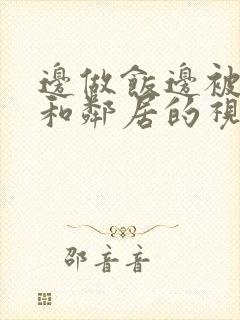 邊做飯邊被
和鄰居的視
邵音音